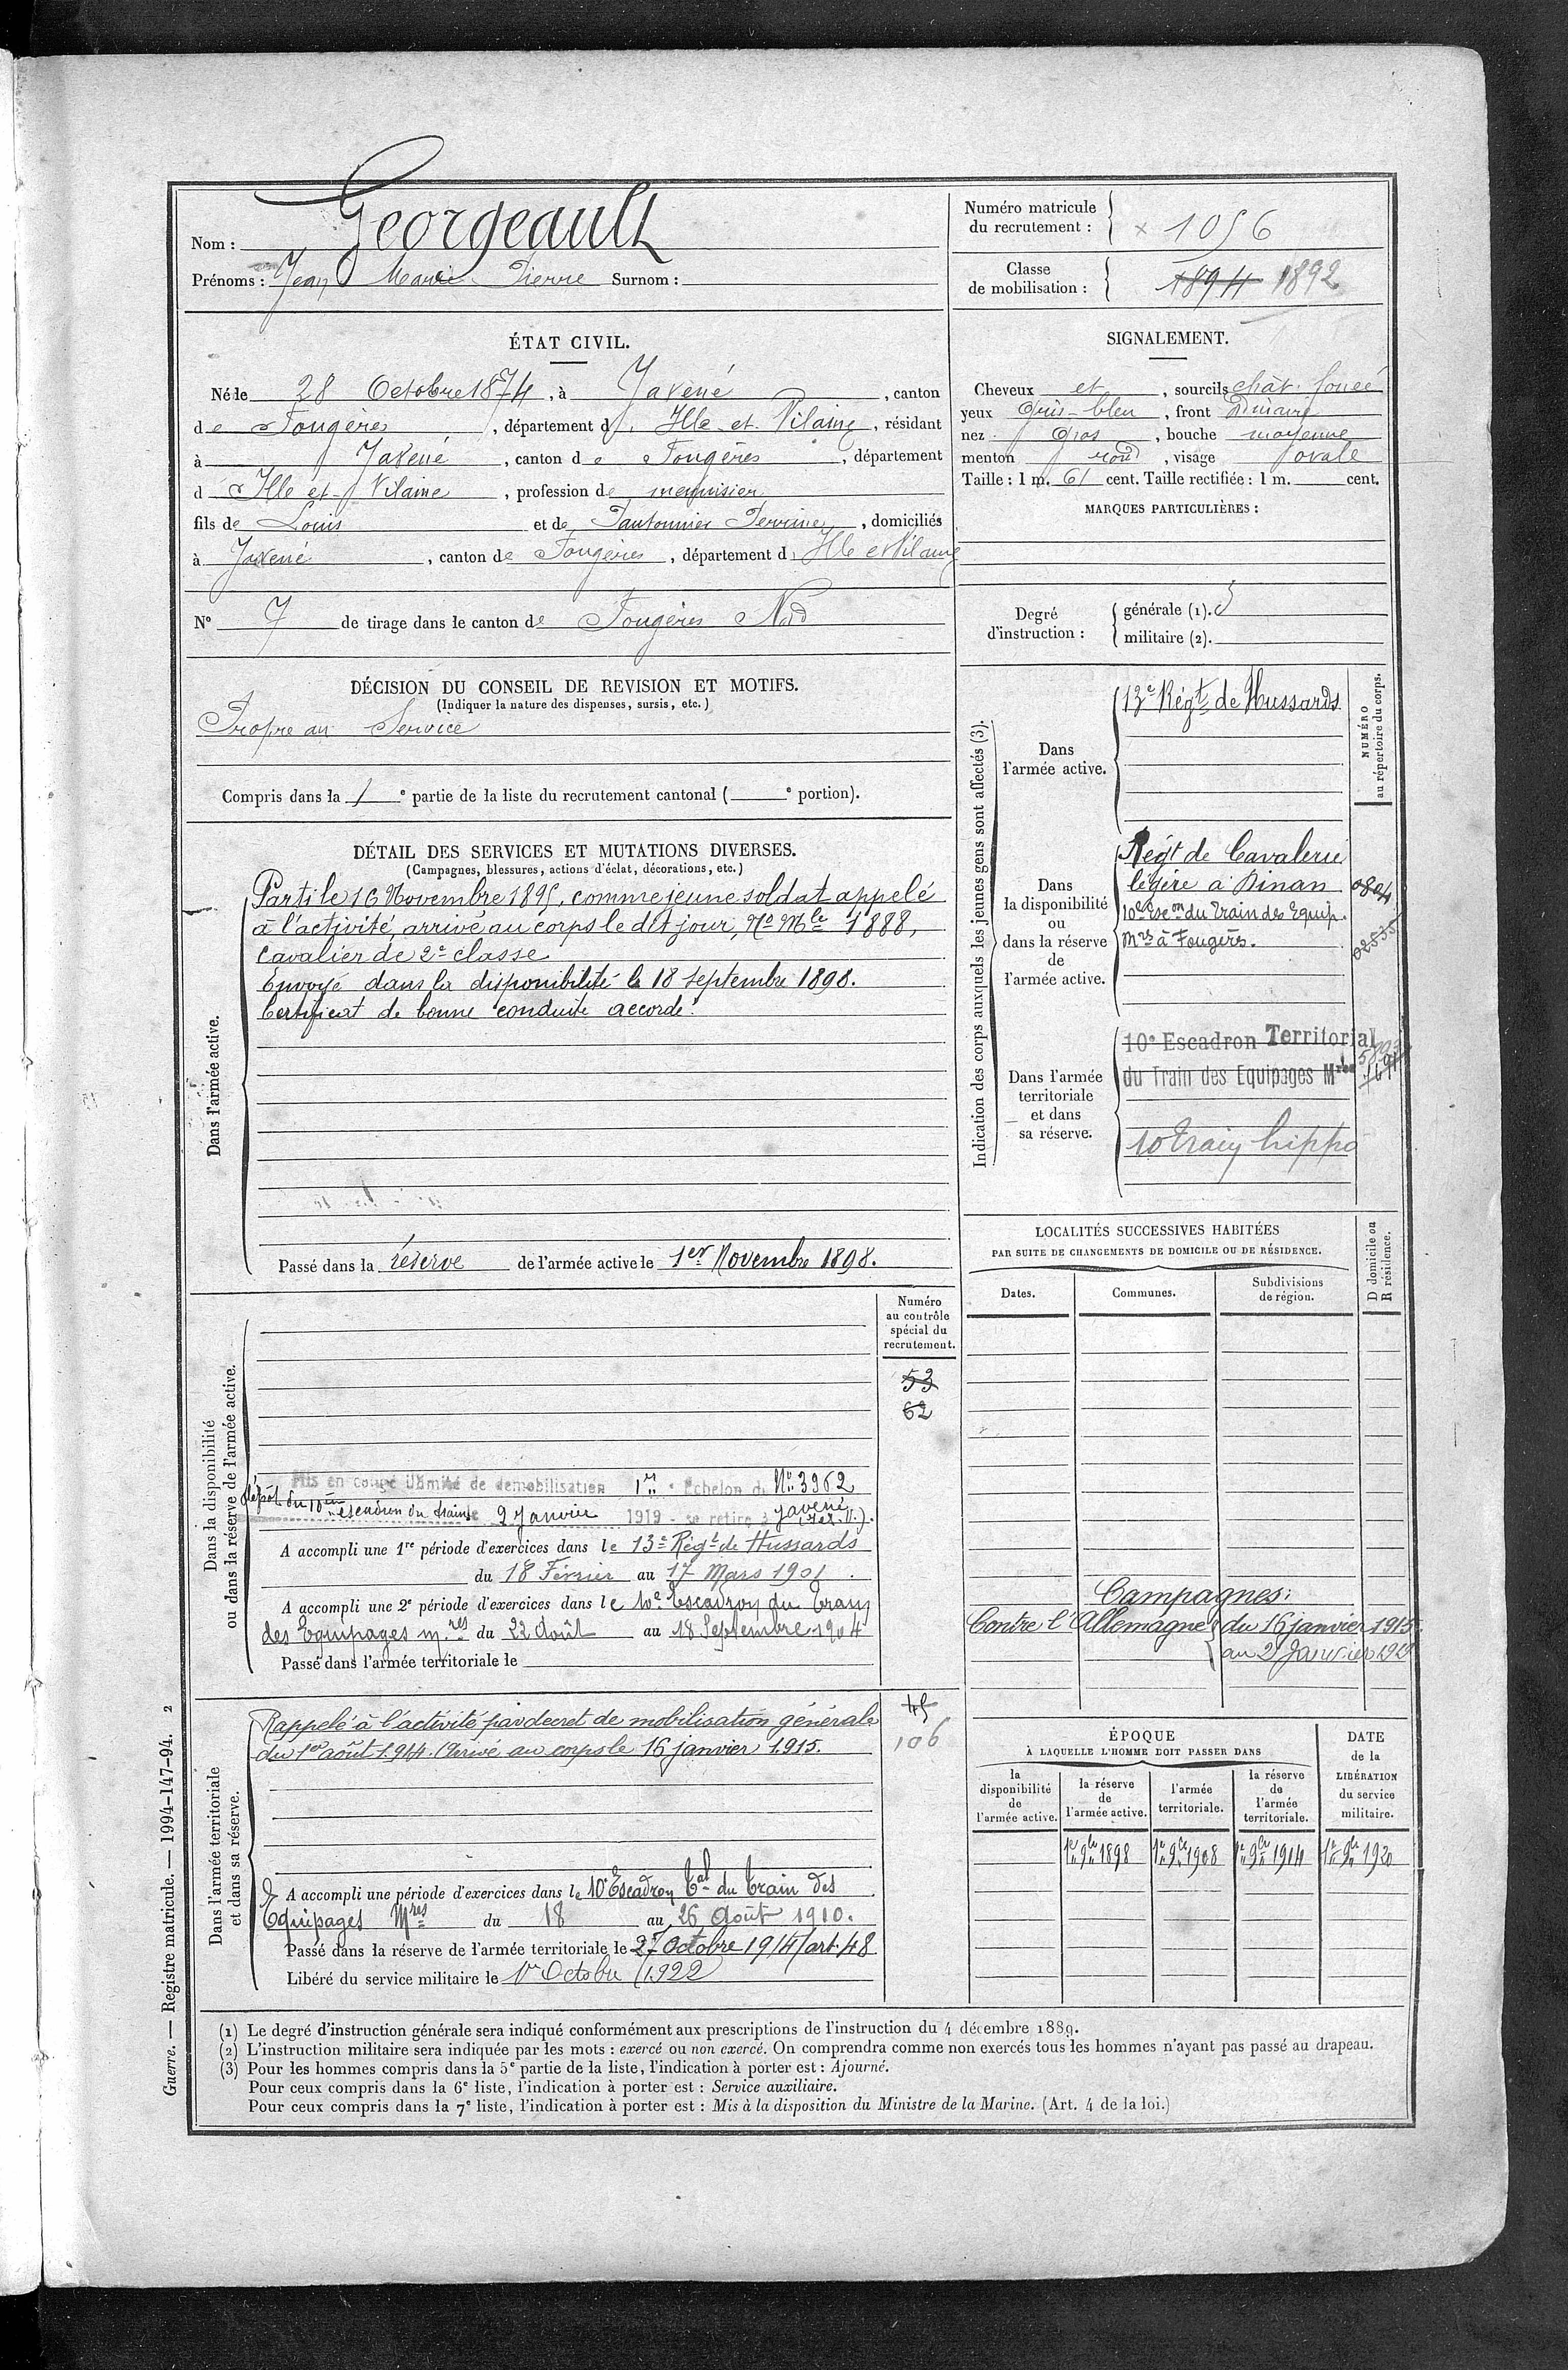 Nom : Georgeault
Prénoms : Jean Marie Pierre Surnom :
Numéro matricule du recrutement : x 1056
Classe de mobilisation : 1894 1892
ÉTAT CIVIL.
Né le 28 Octobre 1874, à Javené, canton
de Fougères, département d'Ille et Vilaine, résidant
à Javené, canton de Fougères, département
d Ille et Vilaine, profession de menuisier
fils de Louis et de Pautonnier Perrine, domiciliés
à Javené, canton de Fougères, département d'Ille et Vilaine
N° 7 de tirage dans le canton de Fougères Nord
DÉCISION DU CONSEIL DE REVISION ET MOTIFS.
(Indiquer la nature des dispenses, sursis, etc.)
Propre au Service
Compris dans la 1e partie de la liste du recrutement cantonal ( e portion).
DÉTAIL DES SERVICES ET MUTATIONS DIVERSES.
(Campagnes, blessures, actions d'éclat, décorations, etc.)
Dans l'armée active.
Parti le 16 Novembre 1895, comme jeune soldat appelé
à l'activité, arrivé au corps le dit jour, No Mle 1888,
cavalier de 2e classe
Envoyé dans la disponibilité le 18 septembre 1898.
Certificat de bonne conduite accordé.
Passé dans la réserve de l'armée active le 1er Novembre 1898.
Dans la disponibilité
ou dans la réserve de l'armée active.
Numéro
au contrôle
spécial du
recrutement.
53
62
Mis en congé illimité de démobilisation 1er Echelon du No 3962
dépôt du 10ème escadron du train le 2 Janvier 1919 - se retire à Javené (I. et V.).
A accompli une 1re période d'exercices dans le 13e Régt de Hussards
du 18 Février au 17 Mars 1901.
A accompli une 2e période d'exercices dans le 10e Escadron du Train
des Equipages mres du 22 Août au 18 Septembre 1904
Passé dans l'armée territoriale le
Dans l'armée territoriale
et dans sa réserve.
45
106
Rappelé à l'activité par decret de mobilisation générale
du 1er août 1914. Arrivé au corps le 16 janvier 1915.
A accompli une période d'exercices dans le 10e Escadron Tal du Train des
Equipages Mres du 18 au 26 Août 1910.
Passé dans la réserve de l'armée territoriale le 27 Octobre 1914 (art. 48
Libéré du service militaire le 1er Octobre 1922
SIGNALEMENT.
Cheveux et, sourcils chât. foncé
yeux Gris-bleu, front ordinaire
nez Gros, bouche moyenne
menton rond, visage ovale
Taille : 1 m. 61 cent. Taille rectifiée : 1 m. cent.
MARQUES PARTICULIÈRES :
Degré d'instruction :
générale (1). 3
militaire (2).
Indication des corps auxquels les jeunes gens sont affectés (3).
NUMÉRO
au répertoire du corps.
Dans
l'armée active.
13e Régt de Hussards
Dans
la disponibilité
ou
dans la réserve
de
l'armée active.
Régt de Cavalerie
légère à Dinan 0804
10e Escon du Train des Equip.
Mres à Fougères. 02535
Dans l'armée
territoriale
et dans
sa réserve.
10e Escadron Territorial
du Train des Equipages Mres
10 Train hippo
LOCALITÉS SUCCESSIVES HABITÉES
PAR SUITE DE CHANGEMENTS DE DOMICILE OU DE RÉSIDENCE.
D domicile ou
R résidence.
Dates.
Communes.
Subdivisions
de région.
Campagnes :
Contre l'Allemagne { du 16 janvier 1915
au 2 Janvier 1919
ÉPOQUE
À LAQUELLE L'HOMME DOIT PASSER DANS
DATE
de la
LIBÉRATION
du service
militaire.
la
disponibilité
de
l'armée active.
la réserve
de
l'armée active.
l'armée
territoriale.
la réserve
de
l'armée
territoriale.
1er 9bre 1898
1er 9bre 1908
1er 9bre 1914
1er 9bre 1920
(1) Le degré d'instruction générale sera indiqué conformément aux prescriptions de l'instruction du 4 décembre 1889.
(2) L'instruction militaire sera indiquée par les mots : exercé ou non exercé. On comprendra comme non exercés tous les hommes n'ayant pas passé au drapeau.
(3) Pour les hommes compris dans la 5e partie de la liste, l'indication à porter est : Ajourné.
Pour ceux compris dans la 6e liste, l'indication à porter est : Service auxiliaire.
Pour ceux compris dans la 7e liste, l'indication à porter est : Mis à la disposition du Ministre de la Marine. (Art. 4 de la loi.)
Guerre. — Registre matricule. — 1994-147-94. 2